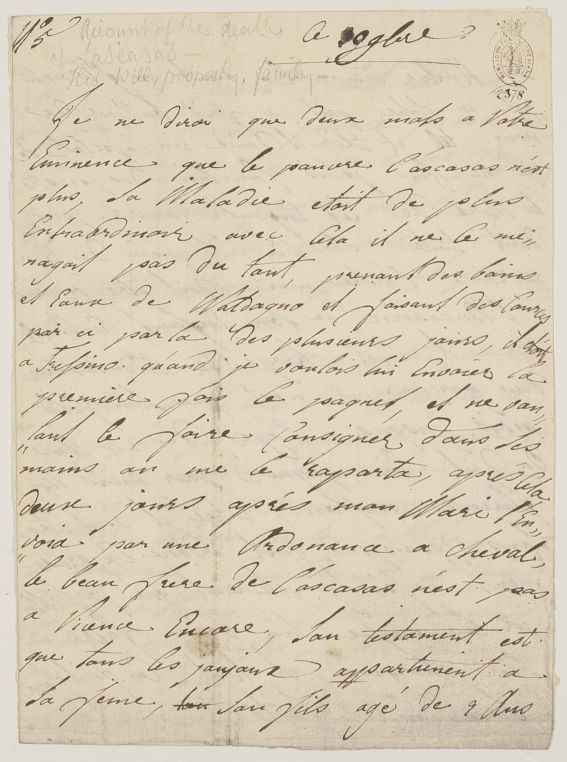 Account of the death
of Cascasas
His will, property, family
Ce 9gbre
2378
Je ne dirai que deux mots a Votre
Eminence que le pauvre Cascasas n'est
plus, Sa Maladie etoit de plus
Extraordinair avec Cela il ne ce me,,
nagoit pas du tout, prenant des bains
et Eaux de Waldagno et faisant des Courses
par ci par la des plusieurs jours, il
a Fressino quand je voulois lui Envoier la
première fois le paquet, et ne vou,,
"lant le faire Consigner dans les
"mains on me le raporta, après Cela
deux jours après mon Mari l'En,,
"voia par une Ordonance a Cheval,
le beau frere de Cascasas n'est pas
a Vicence Encore, Son testament est
que tous les joujoux appartienent a
Sa féme, Son fils agé de 9 Ans